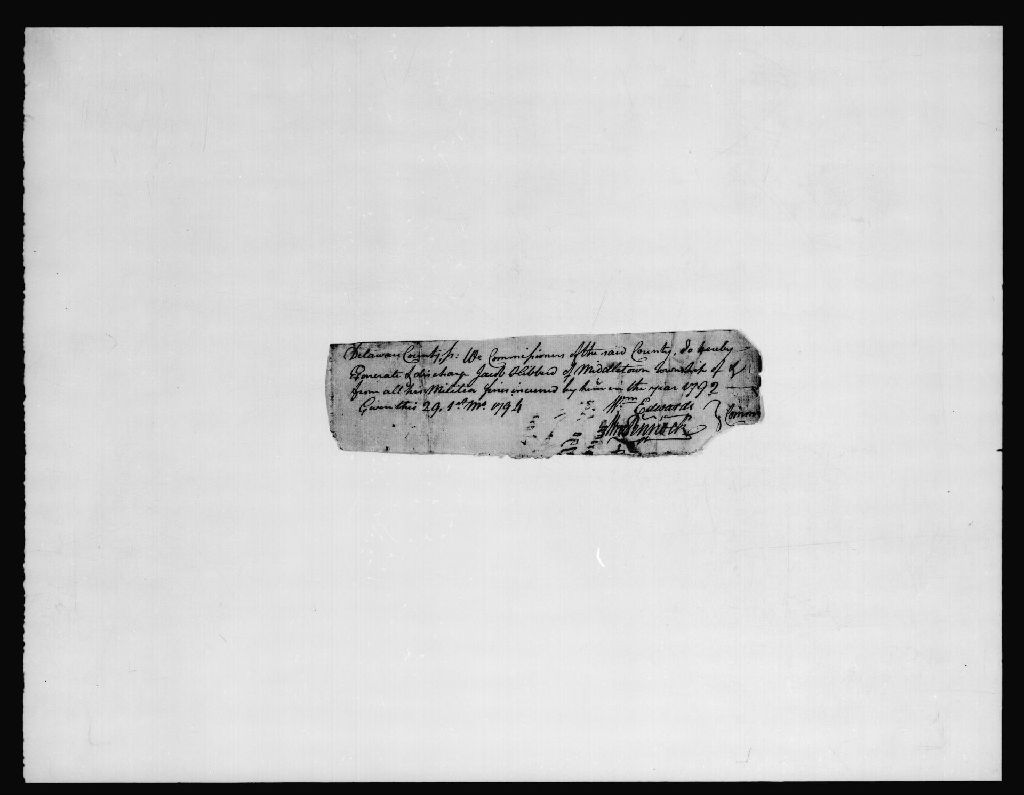 Delaware County, ss: We Commissioners of the said County, do hereby
Exonerate & discharge Jacob Hibberd of Middletown township of & 
from all his Militia fines incurred by him in the year 1792
Given this 29, 1st Mo. 1794
Wm Edwards
Pennock
Comms